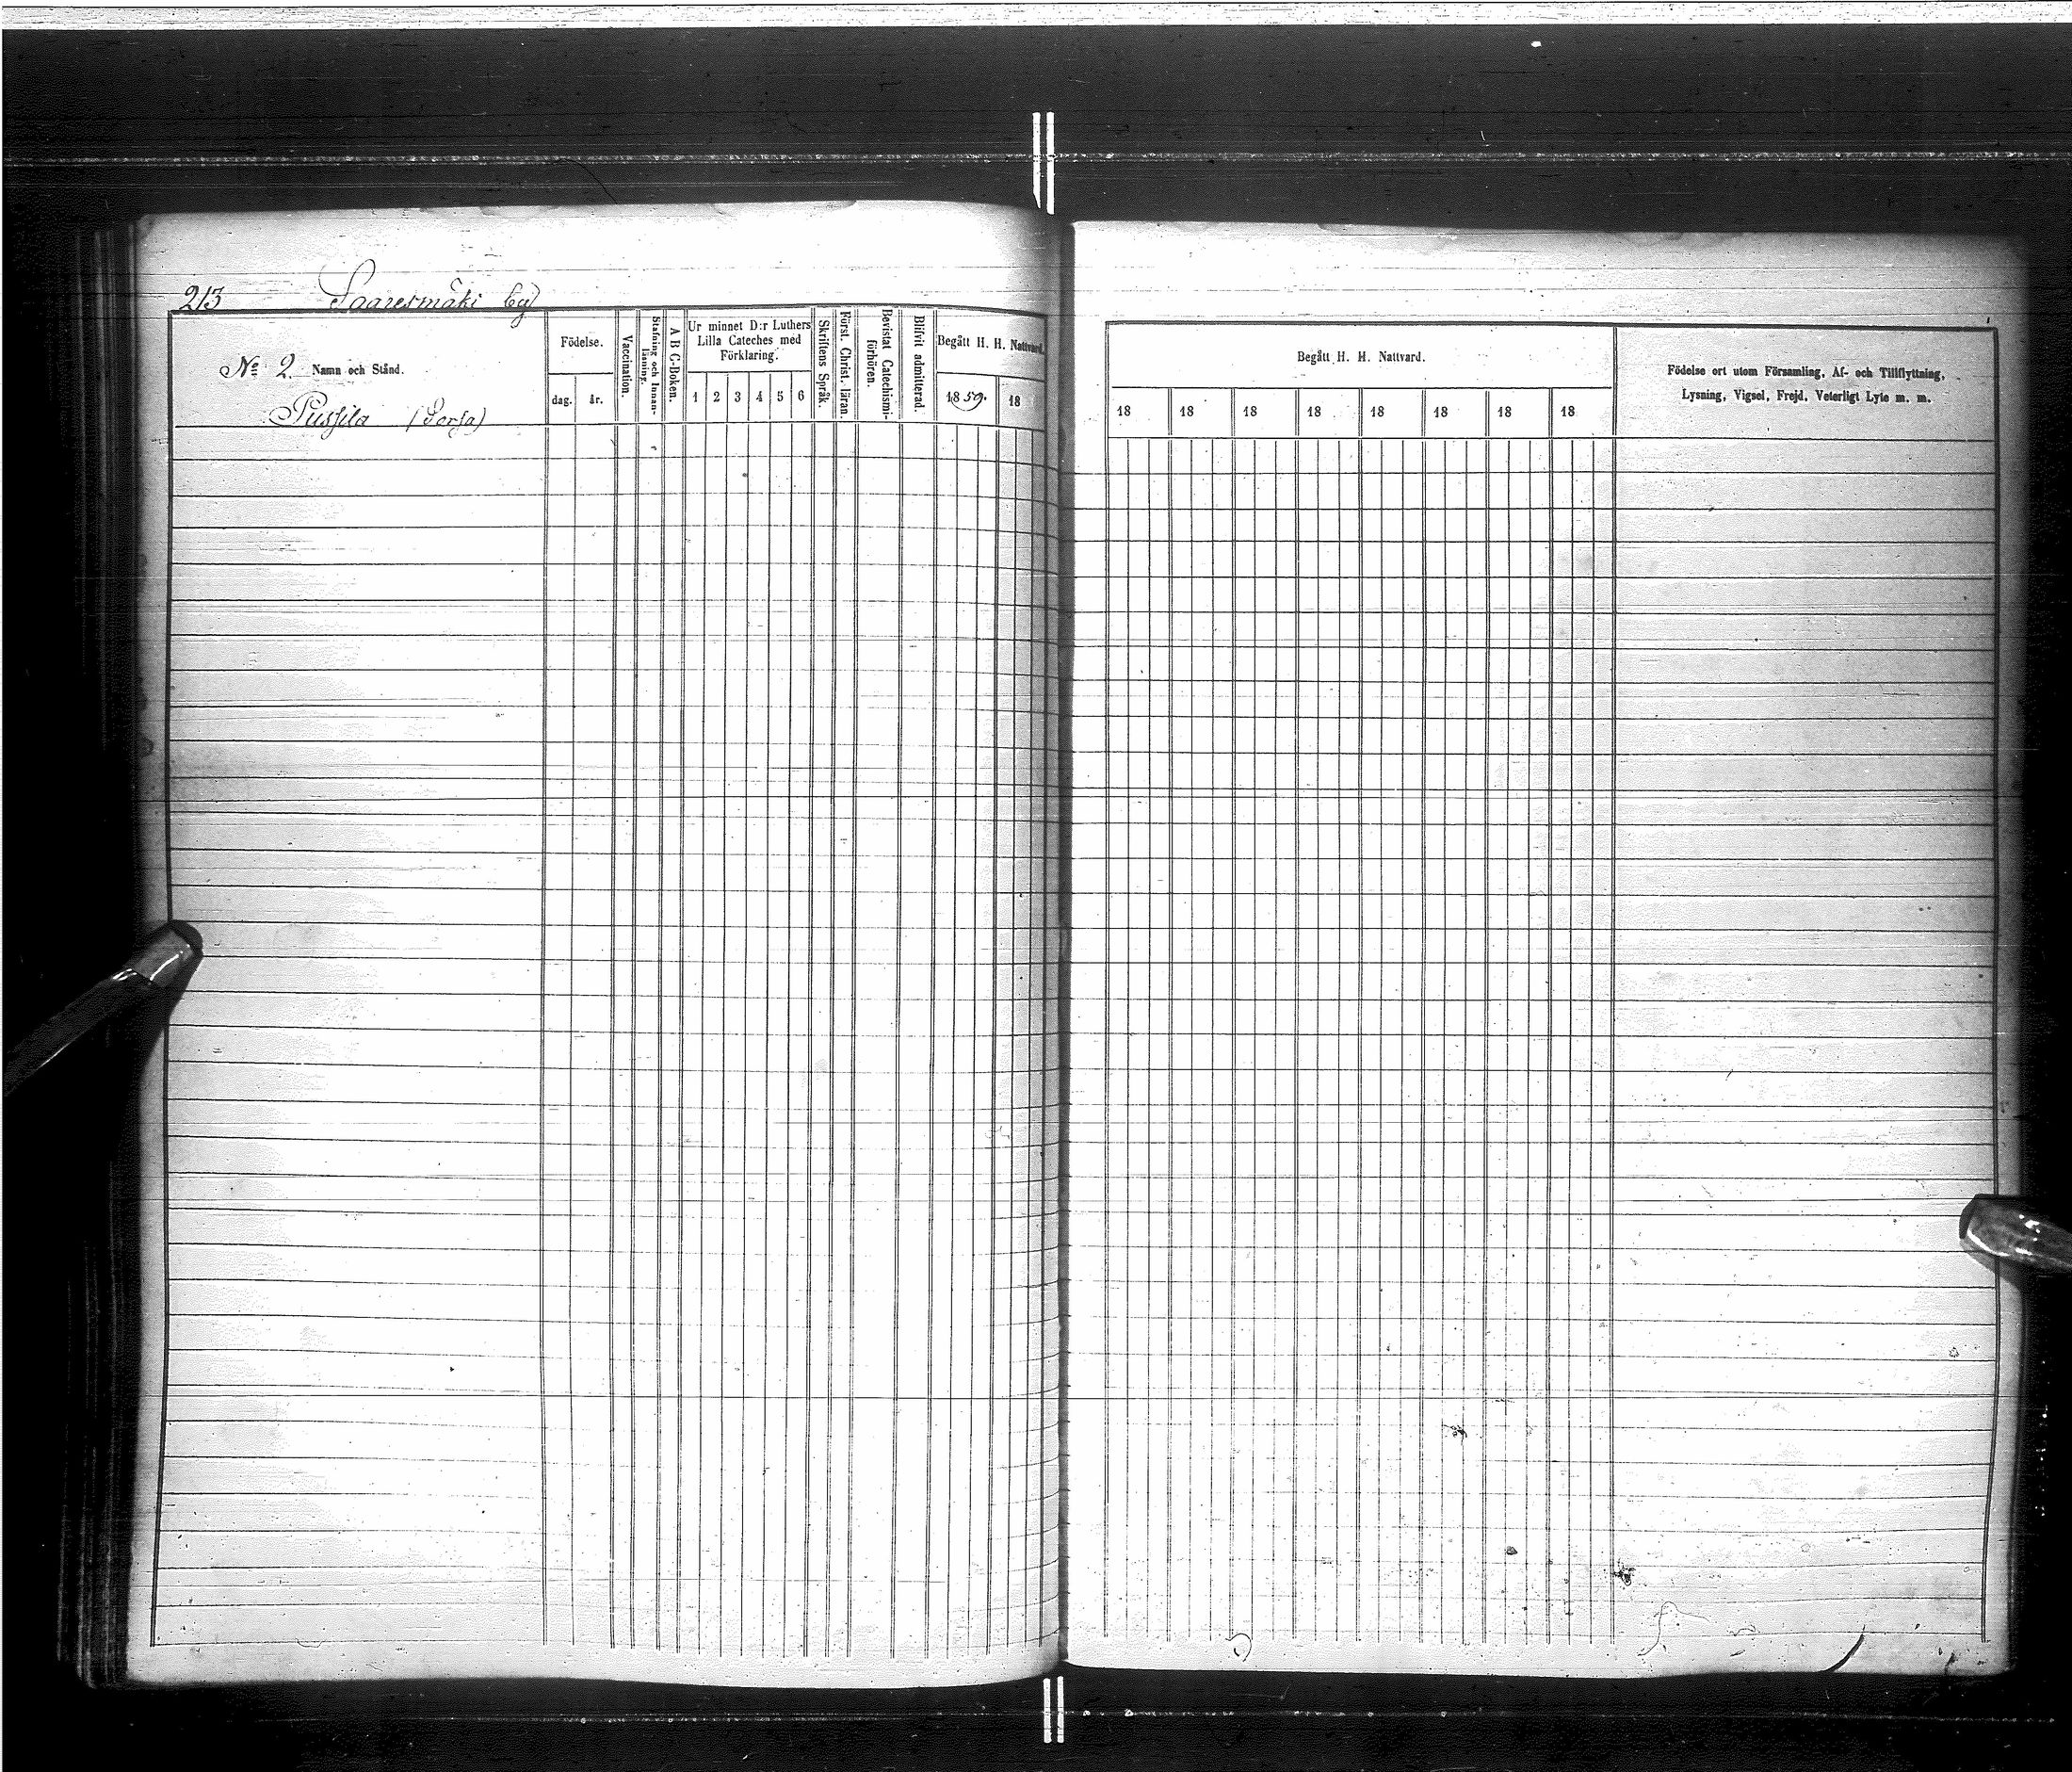 213 Saaresmäki by
No 2. Namn och Stånd.
Pussila (Sorsa)
Födelse.
dag. år.
Vaccination.
Stafning och Innan-
läsning.
A B C-Boken.
Ur minnet D:r Luthers
Lilla Cateches med
Förklaring.
1 2 3 4 5 6
Skriftens Språk.
Först. Christ. läran.
Bevistat Catechismi-
förhören.
Blifvit admitterad.
Begått H. H. Nattvard.
1859. 18
Begått H. H. Nattvard.
18 18 18 18 18 18 18 18
Födelse ort utom Församling, Af- och Tillflyttning,
Lysning, Vigsel, Frejd, Veterligt Lyte m. m.